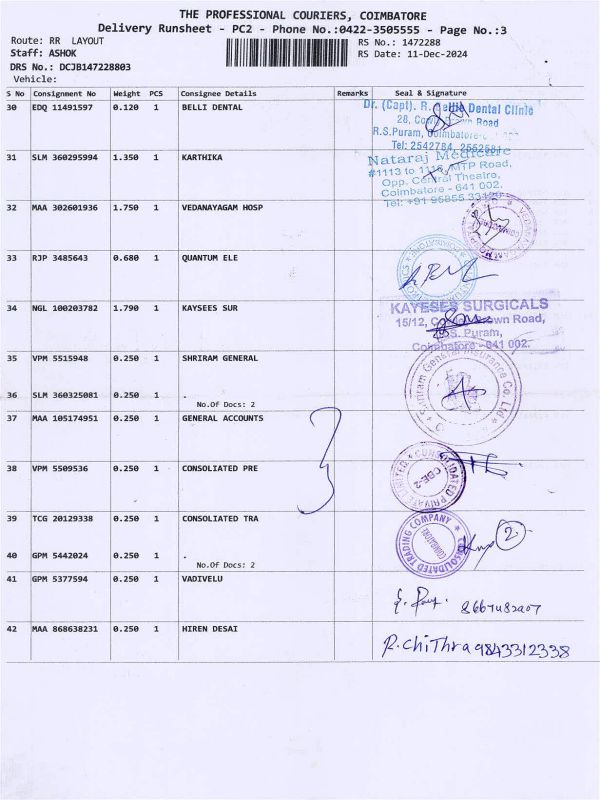 THE PROFESSIONAL COURIERS, COIMBATORE
Delivery Runsheet - PC2 - Phone No.:0422-3505555 - Page No.:3
Route: RR LAYOUT
RS No.: 1472288
Staff: ASHOK
RS Date: 11-Dec-2024
DRS No.: DCJB147228803
Vehicle:
S No Consignment No Weight PCS Consignee Details Remarks Seal & Signature
30 EDQ 11491597 0.120 1 BELLI DENTAL
Dr. (Capt). R. Dental Clinic
28, Road
R.S.Puram, Coimbatore-
Tel: 2542784, 2552581
31 SLM 360295994 1.350 1 KARTHIKA
Nataraj Medicare
#1113 to MTP Road,
Opp. Central Theatre,
Coimbatore - 641 002.
Tel: +91 95855
32 MAA 302601936 1.750 1 VEDANAYAGAM HOSP
33 RJP 3485643 0.680 1 QUANTUM ELE
34 NGL 100203782 1.790 1 KAYSEES SUR
KAYESES SURGICALS
15/12, Road,
R.S. Puram,
Coimbatore - 641 002.
35 VPM 5515948 0.250 1 SHRIRAM GENERAL
Shriram General Insurance Co. Ltd
36 SLM 360325081 0.250 1 .
No.Of Docs: 2
37 MAA 105174951 0.250 1 GENERAL ACCOUNTS
3
38 VPM 5509536 0.250 1 CONSOLIATED PRE
CONSOLIDATED PRIVATE LIMITED
CBE-2
39 TCG 20129338 0.250 1 CONSOLIATED TRA
CONSOLIDATED TRADING COMPANY
COIMBATORE
2
40 GPM 5442024 0.250 1 .
No.Of Docs: 2
41 GPM 5377594 0.250 1 VADIVELU
42 MAA 868638231 0.250 1 HIREN DESAI
R.Chithra 9843312338